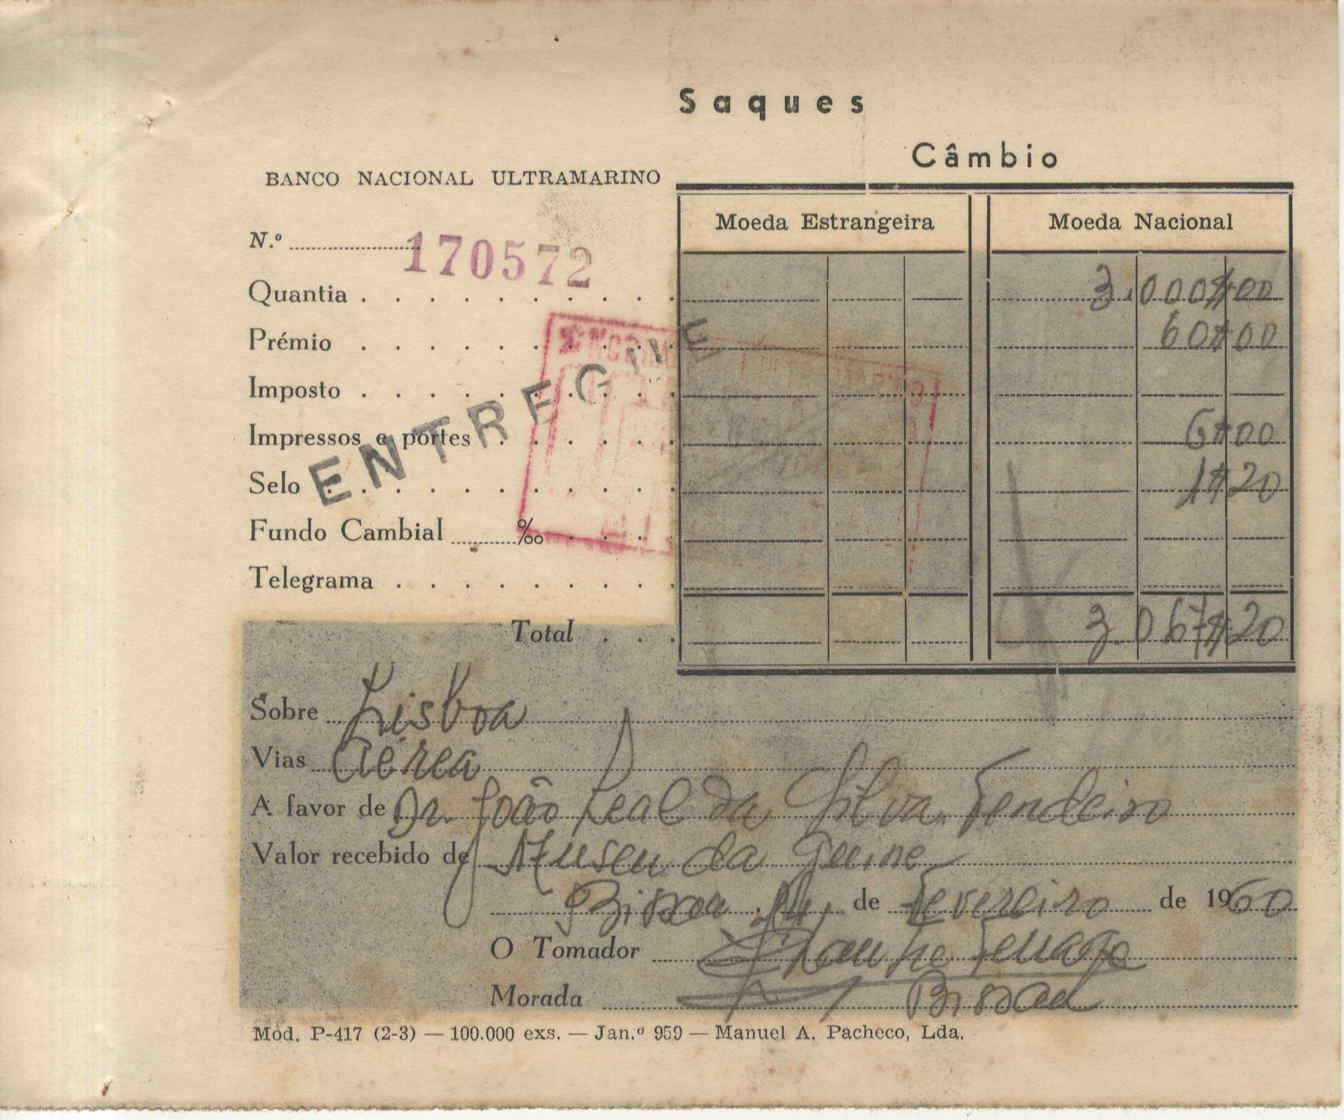 Saques
Câmbio
BANCO NACIONAL ULTRAMARINO
Moeda Estrangeira Moeda Nacional
N.º 170572
Quantia 3.000$00
Prémio 60$00
Imposto
Impressos e portes 6$00
Selo 1$20
Fundo Cambial ‰
Telegrama
Total 3.067$20
ENTREGUE
Sobre Lisboa
Vias Aérea
A favor de Dr. João Leal da Silva Tendeiro
Valor recebido de Museu da Guiné
Bissau, de Fevereiro de 1960
O Tomador
Morada Bissau
Mód. P-417 (2-3) — 100.000 exs. — Jan.º 959 — Manuel A. Pacheco, Lda.